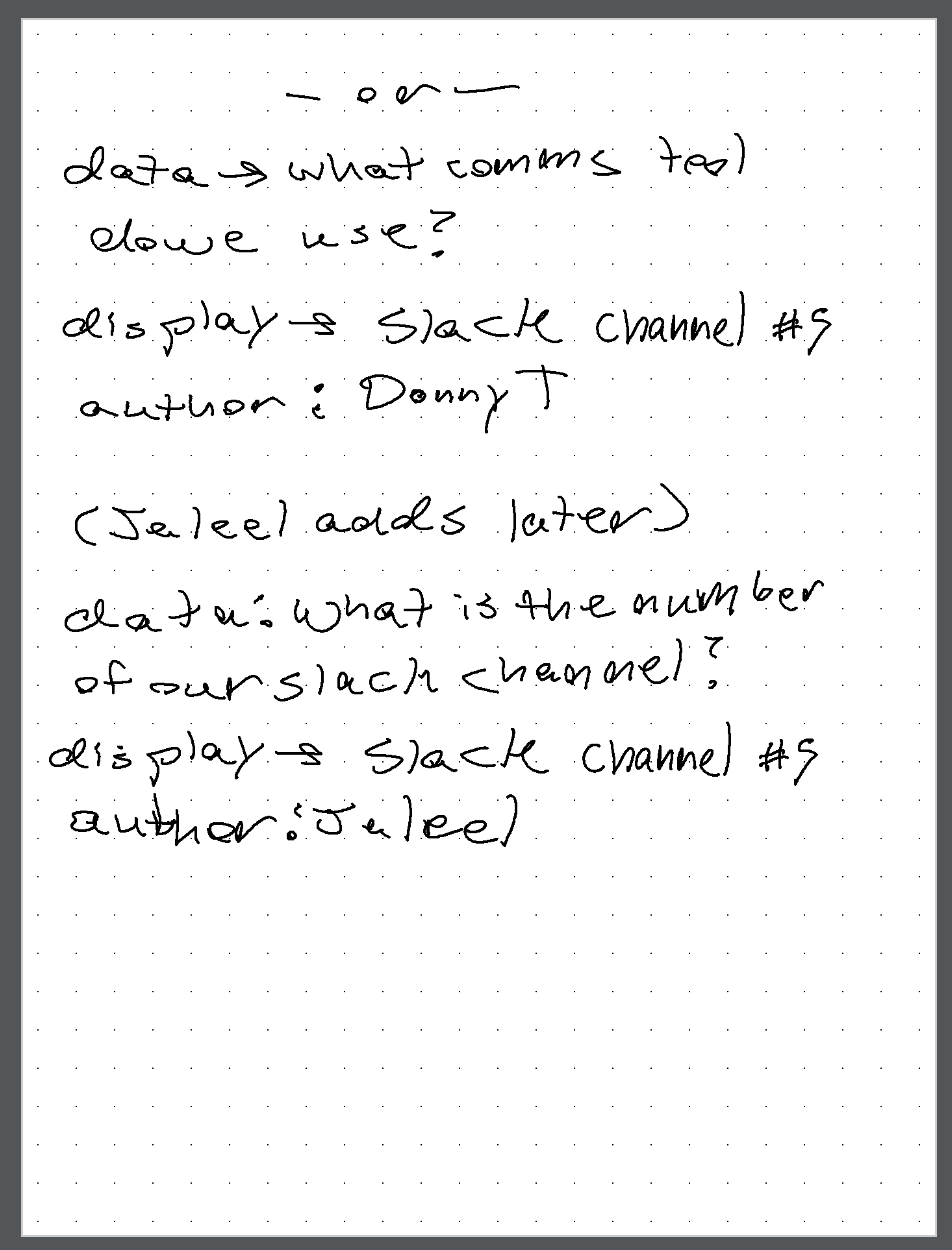 — or —
data → what comms tool
do we use?
display → Slack channel #5
author: Donny T
(Jaleel adds later)
data: what is the number
of our slack channel?
display → Slack channel #5
author: Jaleel